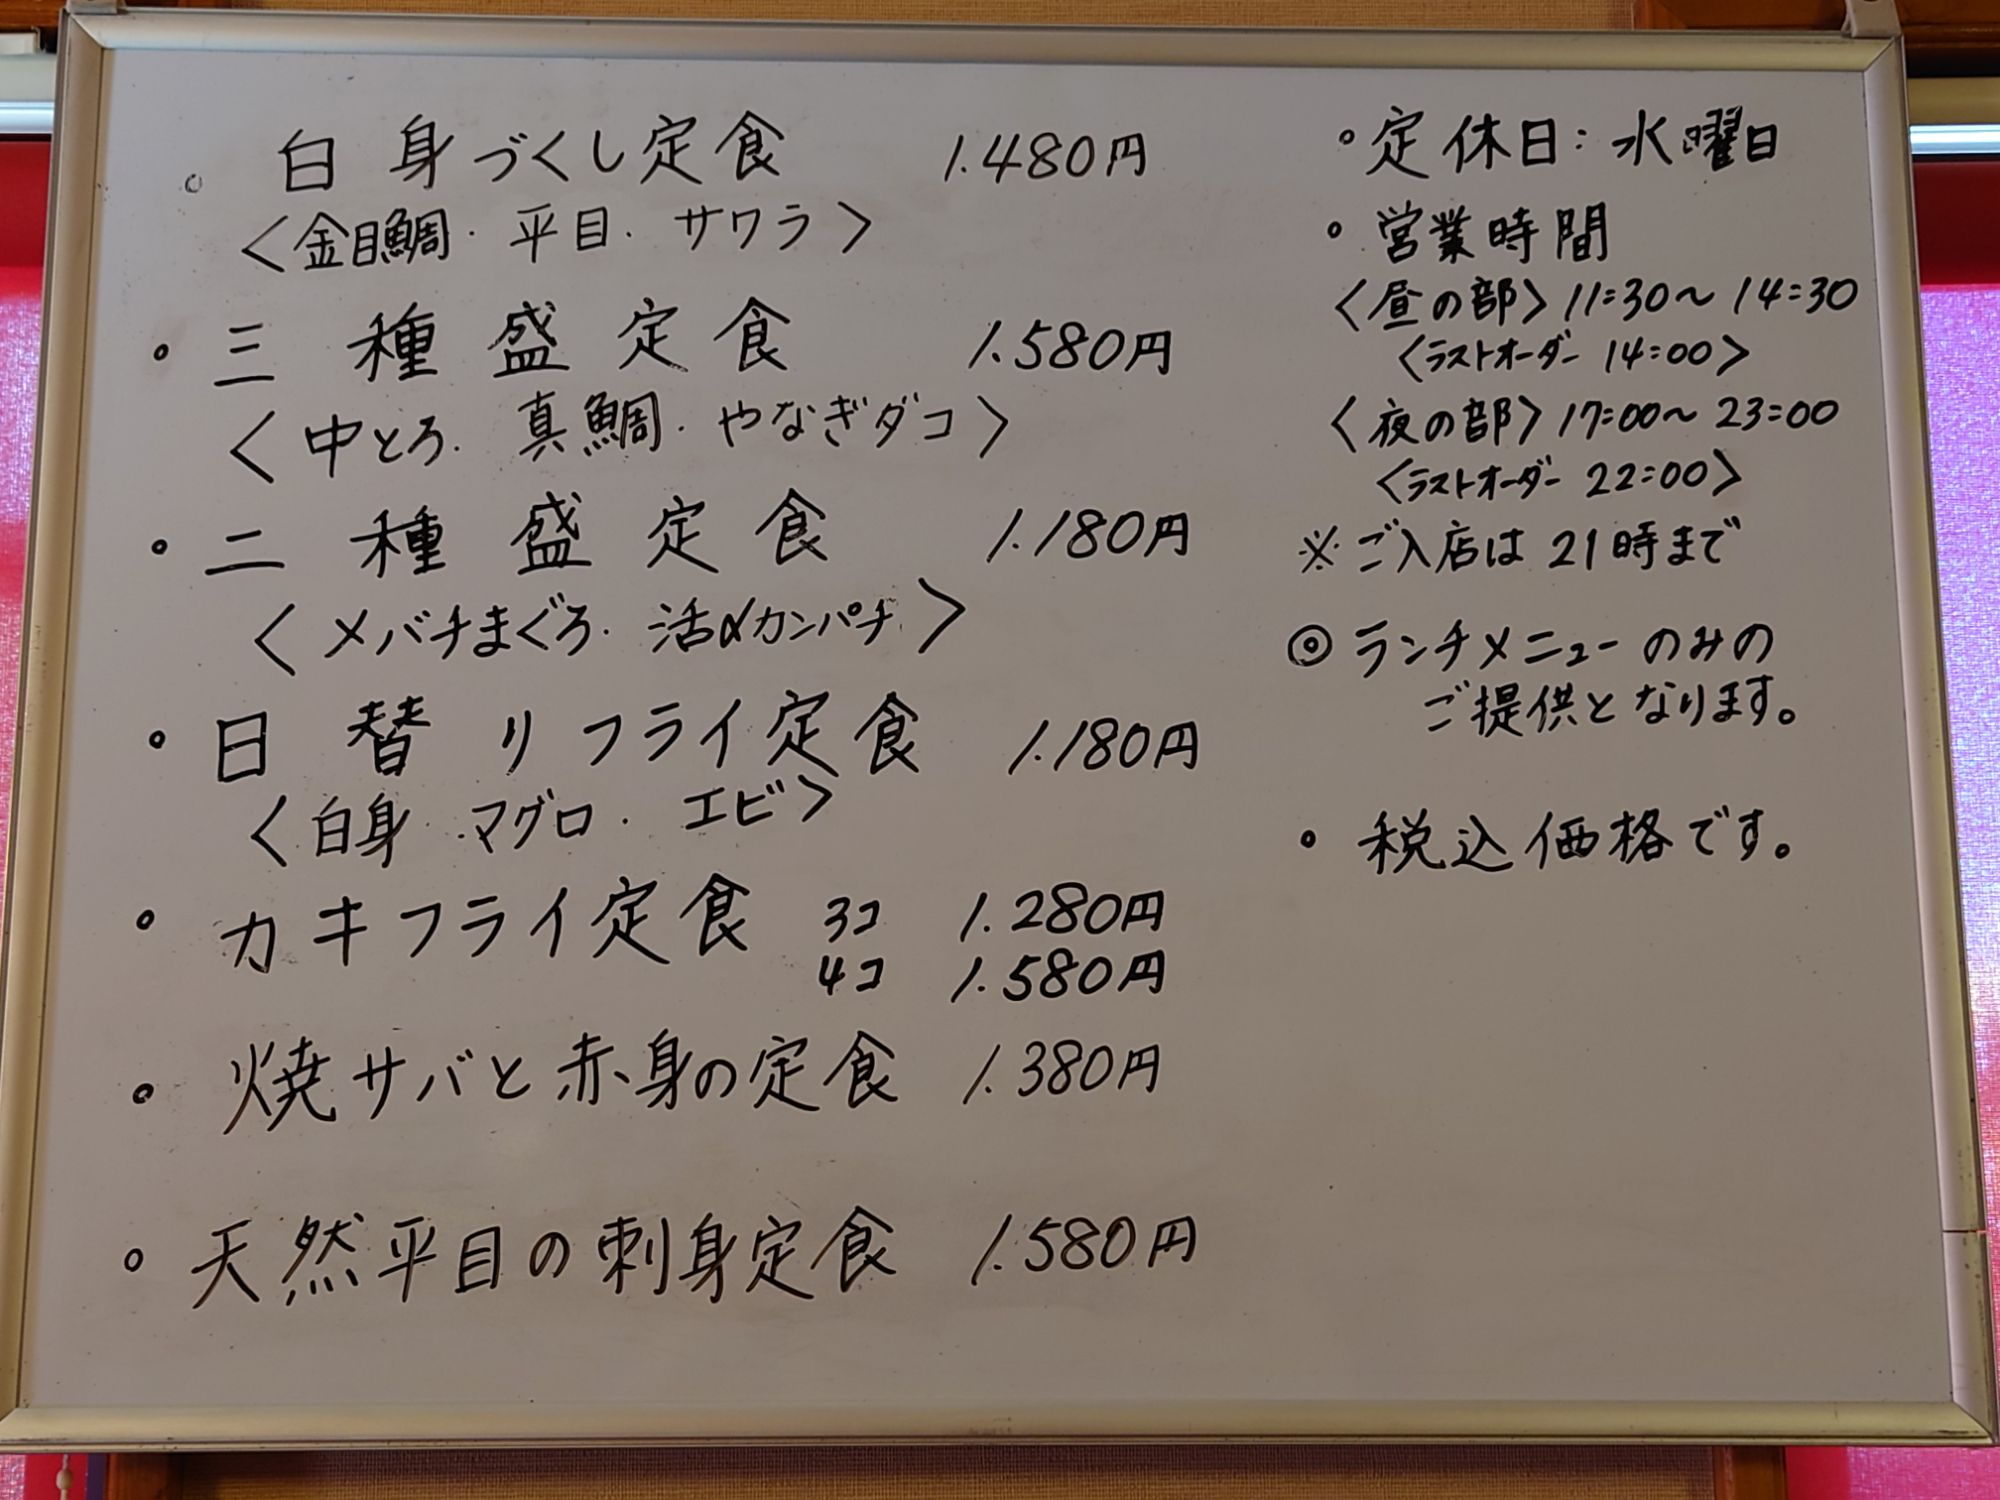 。 白身づくし定食 1.480円
〈金目鯛・平目・サワラ〉
。三種盛定食 1.580円
〈中とろ・真鯛・やなぎダコ〉
。二種盛定食 1.180円
〈メバチまぐろ・活〆カンパチ〉
。日替りフライ定食 1.180円
〈白身・マグロ・エビ〉
。カキフライ定食 3コ 1.280円
4コ 1.580円
。焼サバと赤身の定食 1.380円
。天然平目の刺身定食 1.580円
。定休日:水曜日
。営業時間
〈昼の部〉11:30〜14:30
〈ラストオーダー 14:00〉
〈夜の部〉17:00〜23:00
〈ラストオーダー 22:00〉
※ご入店は21時まで
◎ランチメニューのみの
ご提供となります。
。税込価格です。